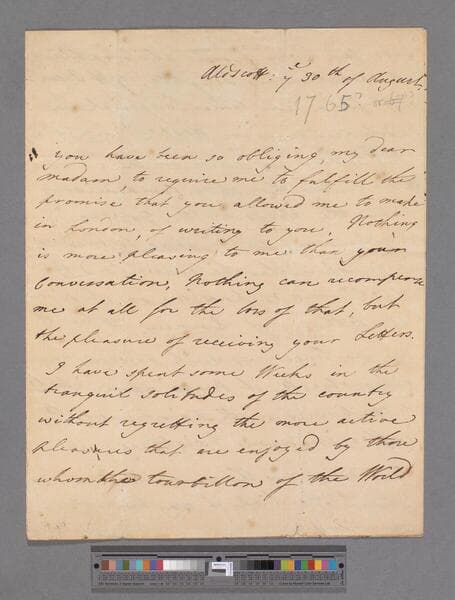 Aldscott: yᵉ 30th of August.
1765? or 67?
you have been so obliging, my dear
madam, to require me to fulfill the
promise that you allowed me to make
in London, of writing to you, Nothing
is more pleasing to me than your
Conversation, Nothing can recompense
me at all for the loss of that, but
the pleasure of receiving your Letters.
I have spent some Weeks in the
tranquil solitudes of the country
without regretting the more active
pleasures that are enjoyed by those
whom the tourbillon of the World